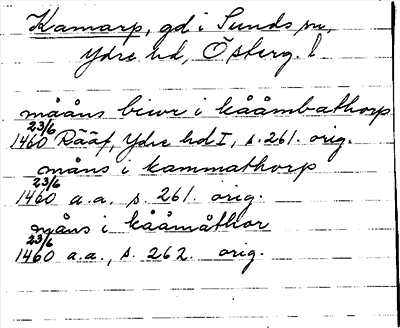 Kamarp, gd i Sunds sn,
Ydre hd, Österg. l.
mååns biwr i kååmbathorp
23/6
1460 Rääf, Ydre hd I, s. 261. orig.
måns i kammathorp
23/6
1460 a.a. s. 261. orig.
måns i kååmåthor
23/6
1460 a.a., s. 262. orig.